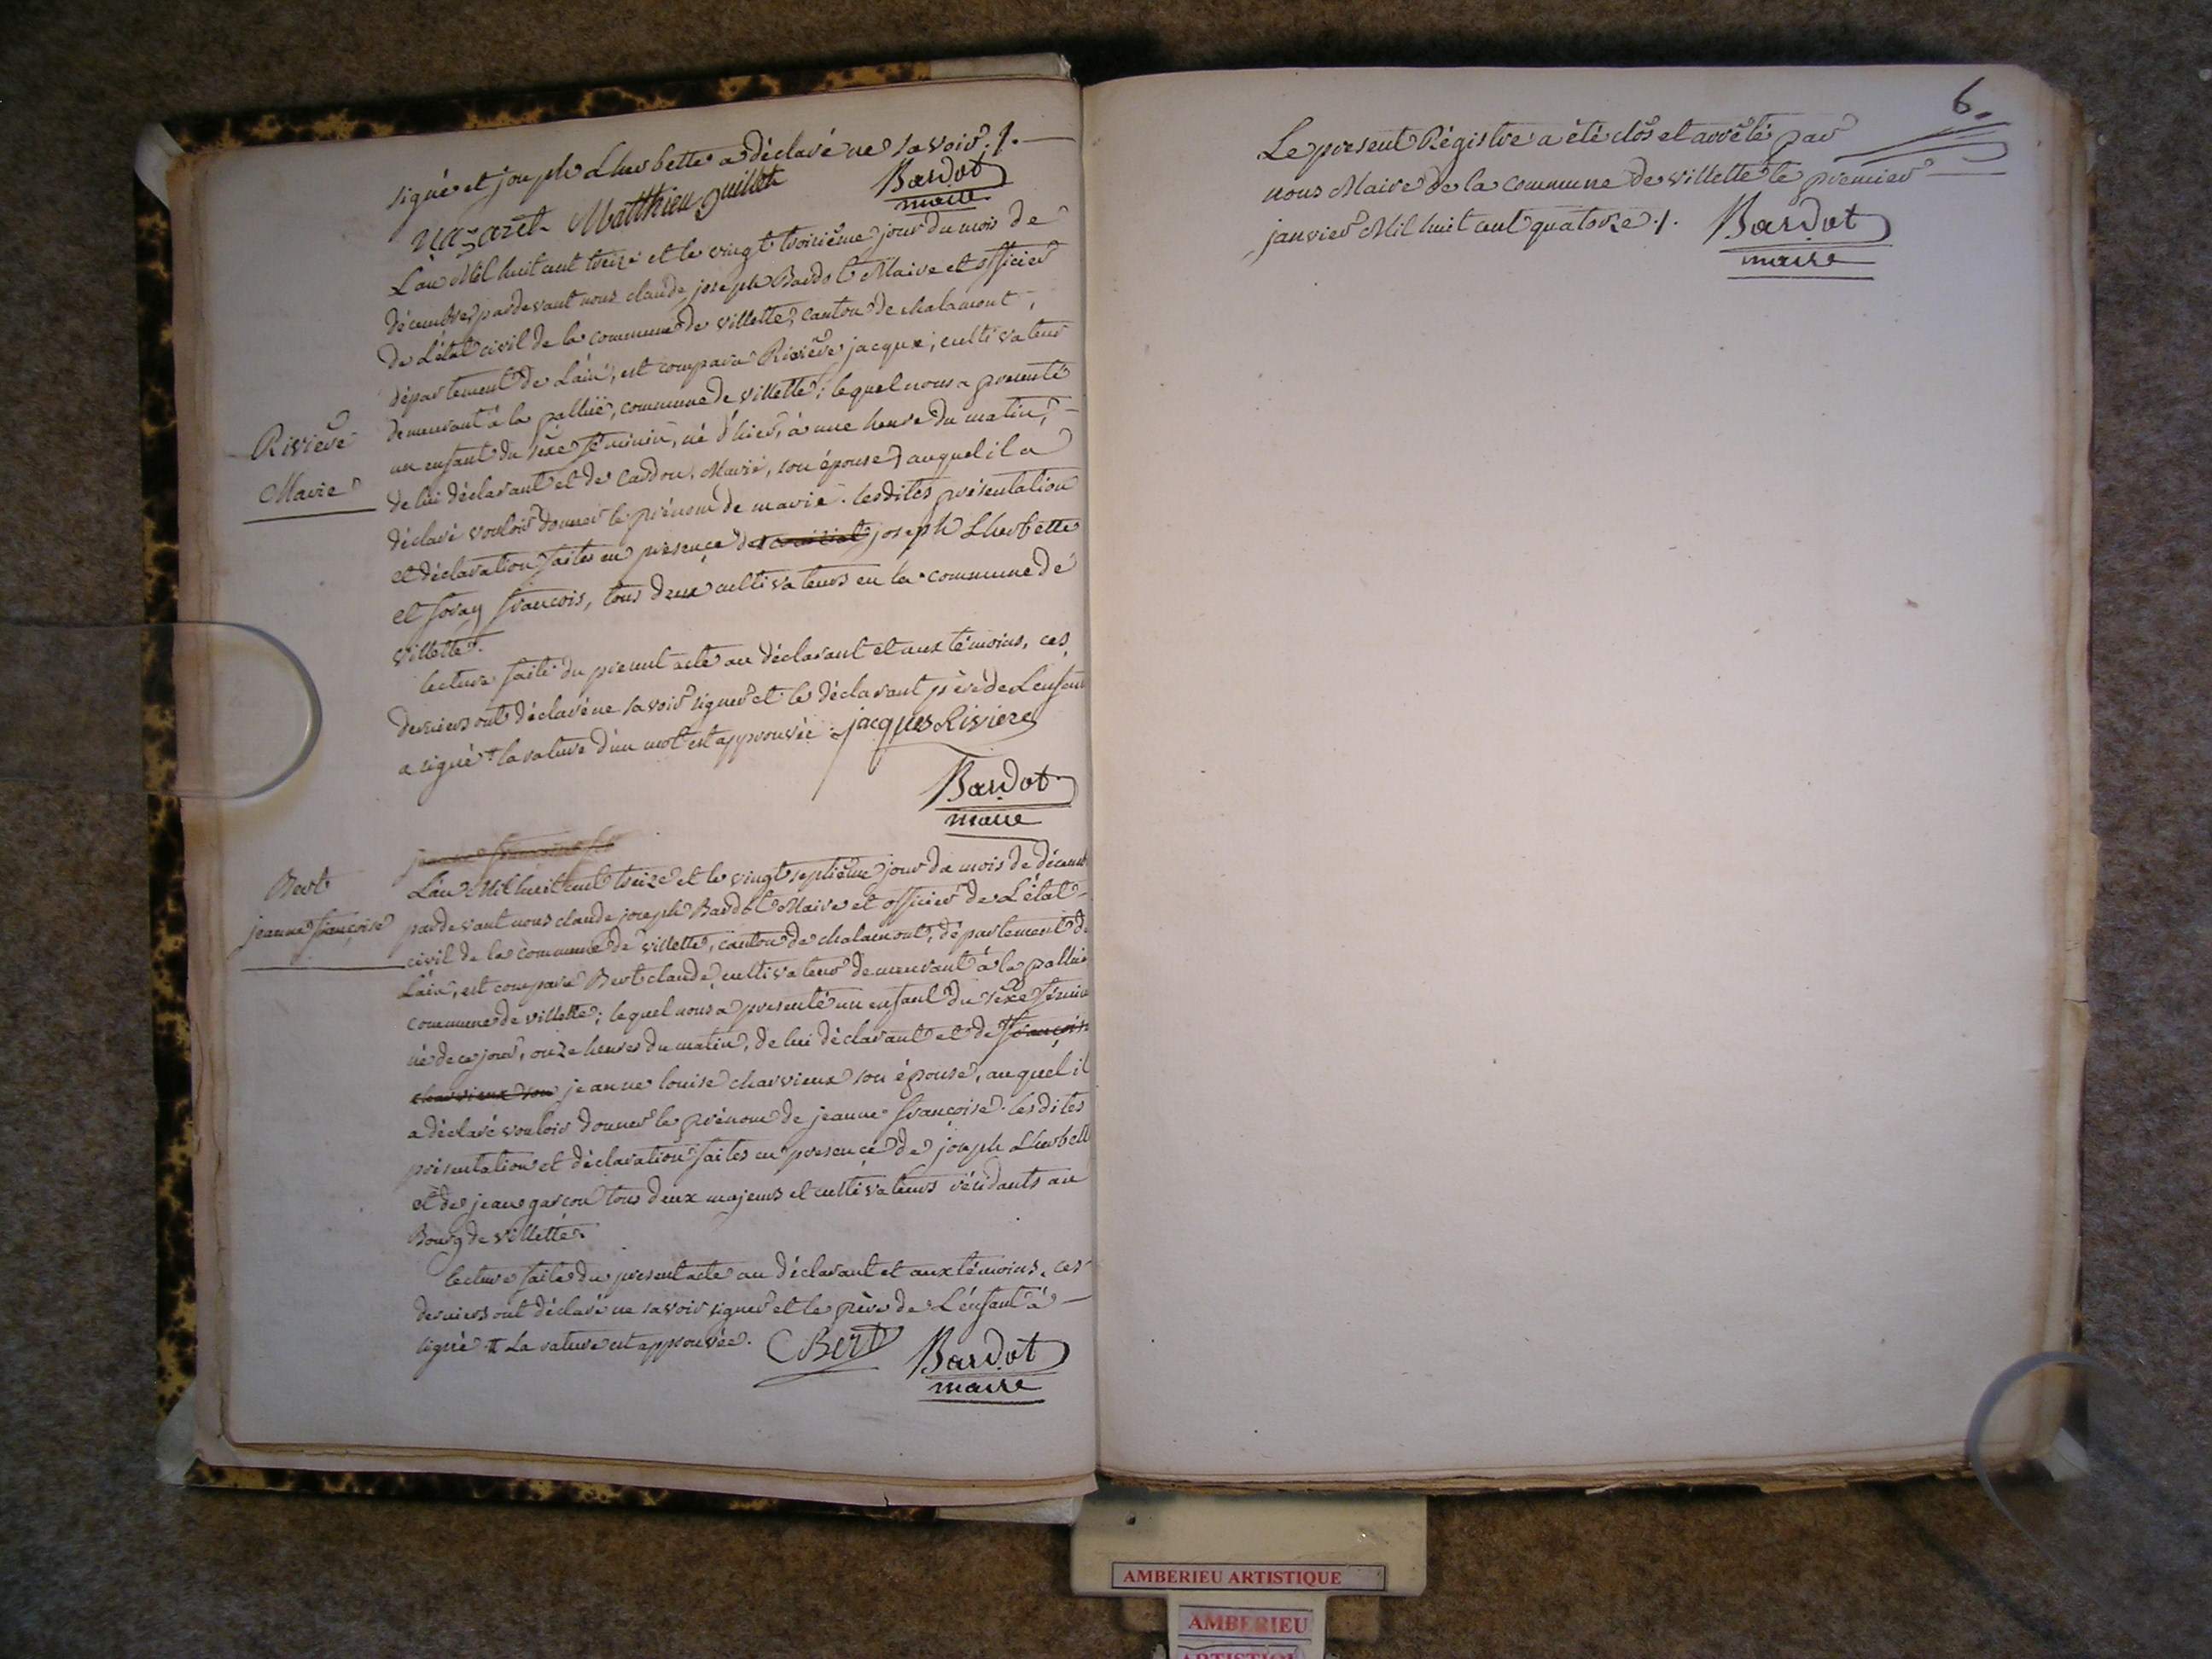 signé et joseph Lherbette a déclaré ne savoir ./.
Nazaret Matthieu Guillet Bardot
maire
L'an Mil huit cent treize et le vingt troisième jour du mois de
décembre, pardevant nous claude joseph Bardot Maire et officier
de L'état civil de la commune de villette, canton de chalamont,
département de L'ain, est comparu Rivière jacque, cultivateur
demeurant à la palluë, commune de villette; lequel nous a presenté
Rivière
Marie
un enfant du sexe féminin, né d'hier, à une heure du matin,
de lui déclarant et de Cardon, Marie, son épouse, auquel il a
déclaré vouloir donner le prénom de marie. lesdites présentation
et déclaration faites en presence de joseph Lherbette
et foray francois, tous deux cultivateurs en la commune de
villette.
lecture faite du present acte au déclarant et aux témoins, ces
derniers ont déclaré ne savoir signer et le déclarant père de L'enfant
a signé la rature d'un mot est approuvée. jacques Riviere
Bardot
maire
Bert
jeanne françoise
L'an Mil huit cent treize et le vingt septième jour du mois de décemb
pardevant nous claude joseph Bardot Maire et officier de L'état
civil de la commune de villette, canton de chalamont, département de
L'ain, est comparu Bert claude, cultivateur demeurant à la palluë
commune de villette; lequel nous a presenté un enfant du sexe fémin
né de ce jour, onze heures du matin, de lui déclarant et de françoise
charvieux son jeanne louise charvieux son épouse, auquel il
a déclaré vouloir donner le prénom de jeanne françoise. lesdites
présentation et déclaration faites en presence de joseph Lherbett
et de jean garcon tous deux majeurs et cultivateurs résidants au
Bourg de villette.
lecture faite du present acte au déclarant et aux témoins, ces
derniers ont déclaré ne savoir signer et le père de L'enfant a
signé La rature est approuvée. C Bert Bardot
maire
6.
Le present Régistre a été clos et arrêté par
nous Maire de la commune de villette le premier
janvier Mil huit cent quatorze ./. Bardot
maire
AMBERIEU ARTISTIQUE
AMBERIEU
ARTISTIQU